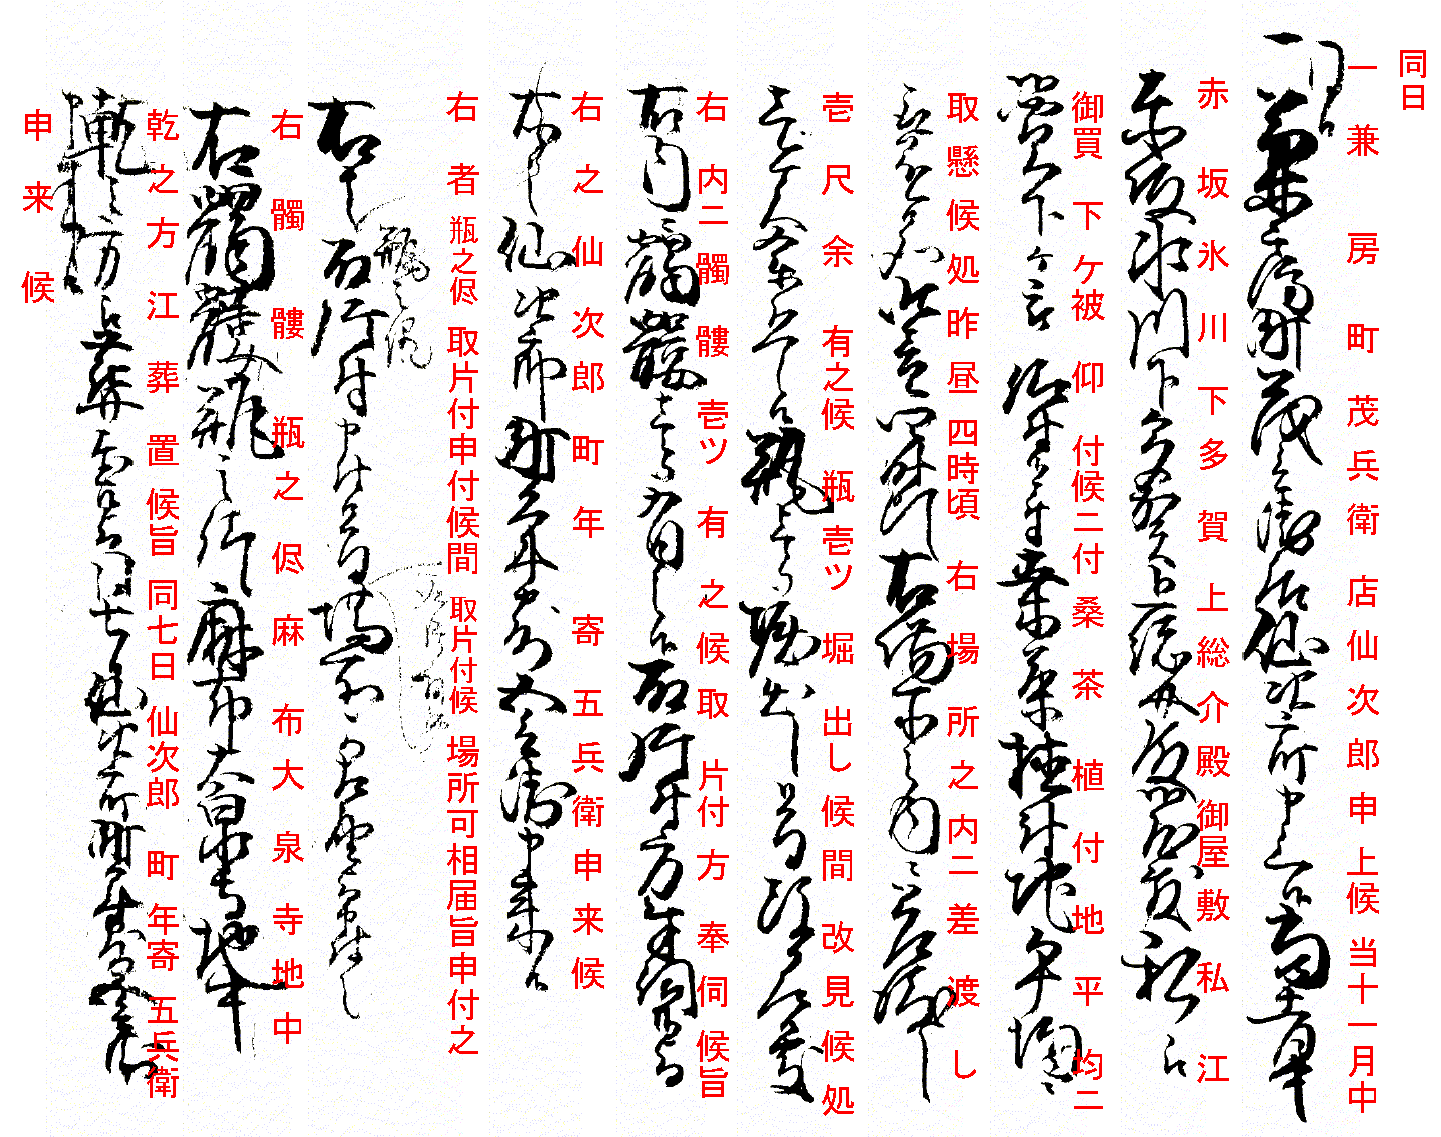 同日
一兼房町茂兵衛店仙次郎申上候当十一月中
赤坂氷川下多賀上総介殿御屋敷私江
御買下ケ被仰付候ニ付桑茶植付地平均ニ
取懸候処昨昼四時頃右場所之内ニ差渡し
壱尺余有之候瓶壱ツ堀出し候間改見候処
右内ニ髑髏壱ツ有之候取片付方奉伺候旨
右之仙次郎町年寄五兵衛申来候
右者瓶之侭取片付申付候間取片付候場所可相届旨申付之
右髑髏瓶之侭麻布大泉寺地中
乾之方江葬置候旨同七日仙次郎町年寄五兵衛
申来候